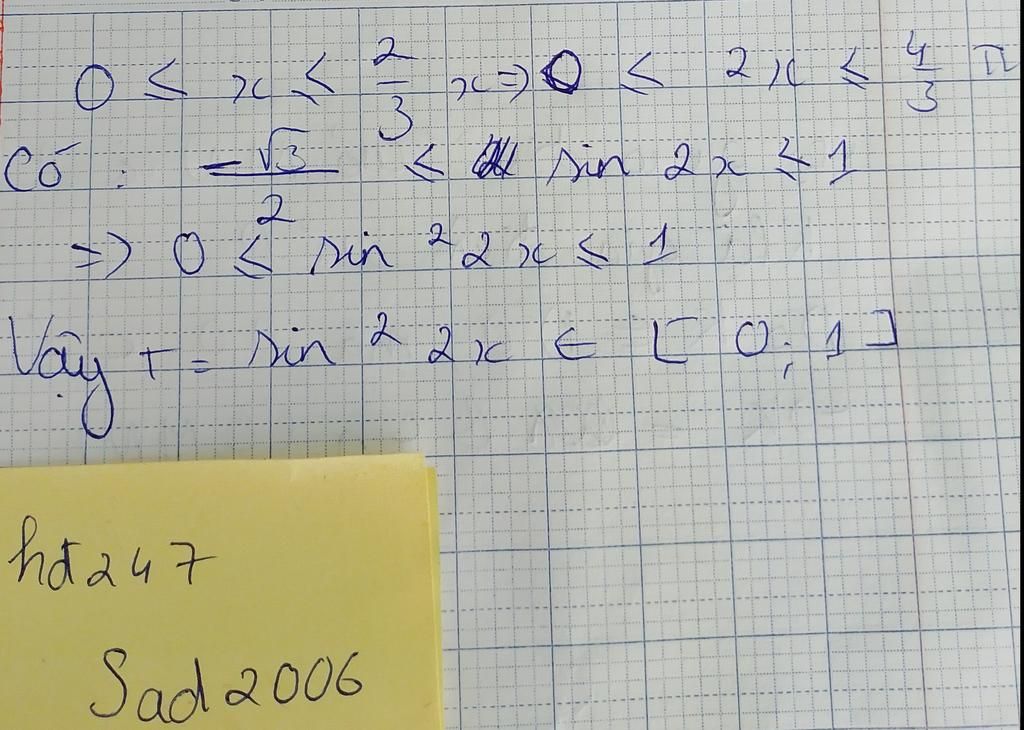 0 ≤ x ≤ 2/3 x ⇒ 0 ≤ 2x ≤ 4/3 π
Có: -√3/2 ≤ sin 2x ≤ 1
⇒ 0 ≤ sin² 2x ≤ 1
Vậy T = sin² 2x ∈ [0; 1]
hđ247
Sad2006